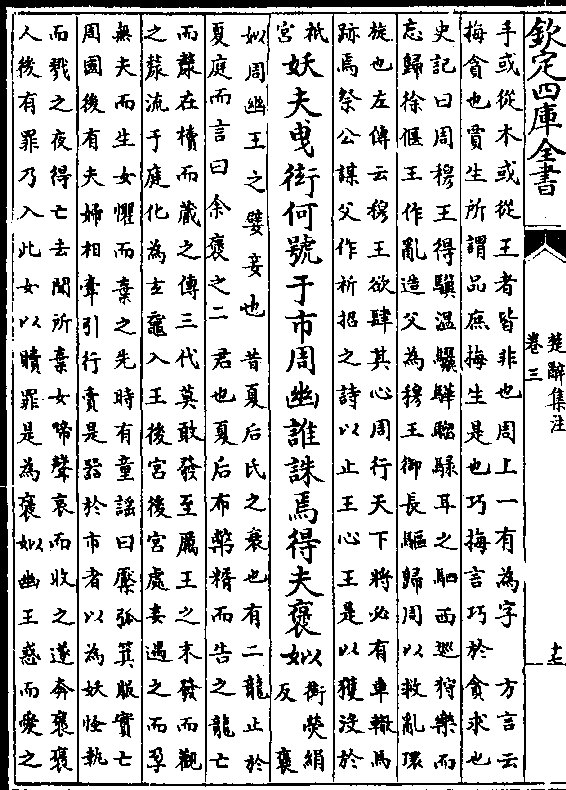 欽定四庫全書
楚辭集注
卷三
十七
手或從木或從王者皆非也周上一有為字　方言云
梅貪也賈生所謂品庶梅生是也巧梅言巧於貪求也
史記曰周穆王得驥溫驪驊騮騄耳之駟西巡狩樂而
忘歸徐偃王作亂造父為穆王御長驅歸周以救亂環
旋也左傳云穆王欲肆其心周行天下將必有車轍馬
跡焉祭公謀父作祈招之詩以止王心王是以獲沒於
祇宮妖夫曳衒何號于市周幽誰誅焉得夫褒姒衒熒絹反　褒
姒周幽王之嬖妾也昔夏后氏之衰也有二龍止於
夏庭而言曰余褒之二君也夏后布幣糈而告之龍亡
而漦在櫝而藏之傳三代莫敢發至厲王之末發而觀
之漦流于庭化為玄黿入王後宮後宮處妾遇之而孕
無夫而生女懼而棄之先時有童謠曰檿弧箕服實亡
周國後有夫婦相牽引行賣是器於市者以為妖怪執
而戮之夜得亡去聞所棄女啼聲哀而收之遂奔褒褒
人後有罪乃入此女以贖罪是為褒姒幽王惑而愛之